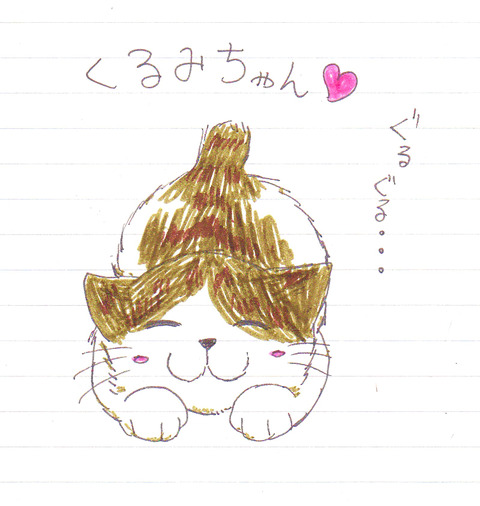 くるみちゃん
ぐるぐる・・・